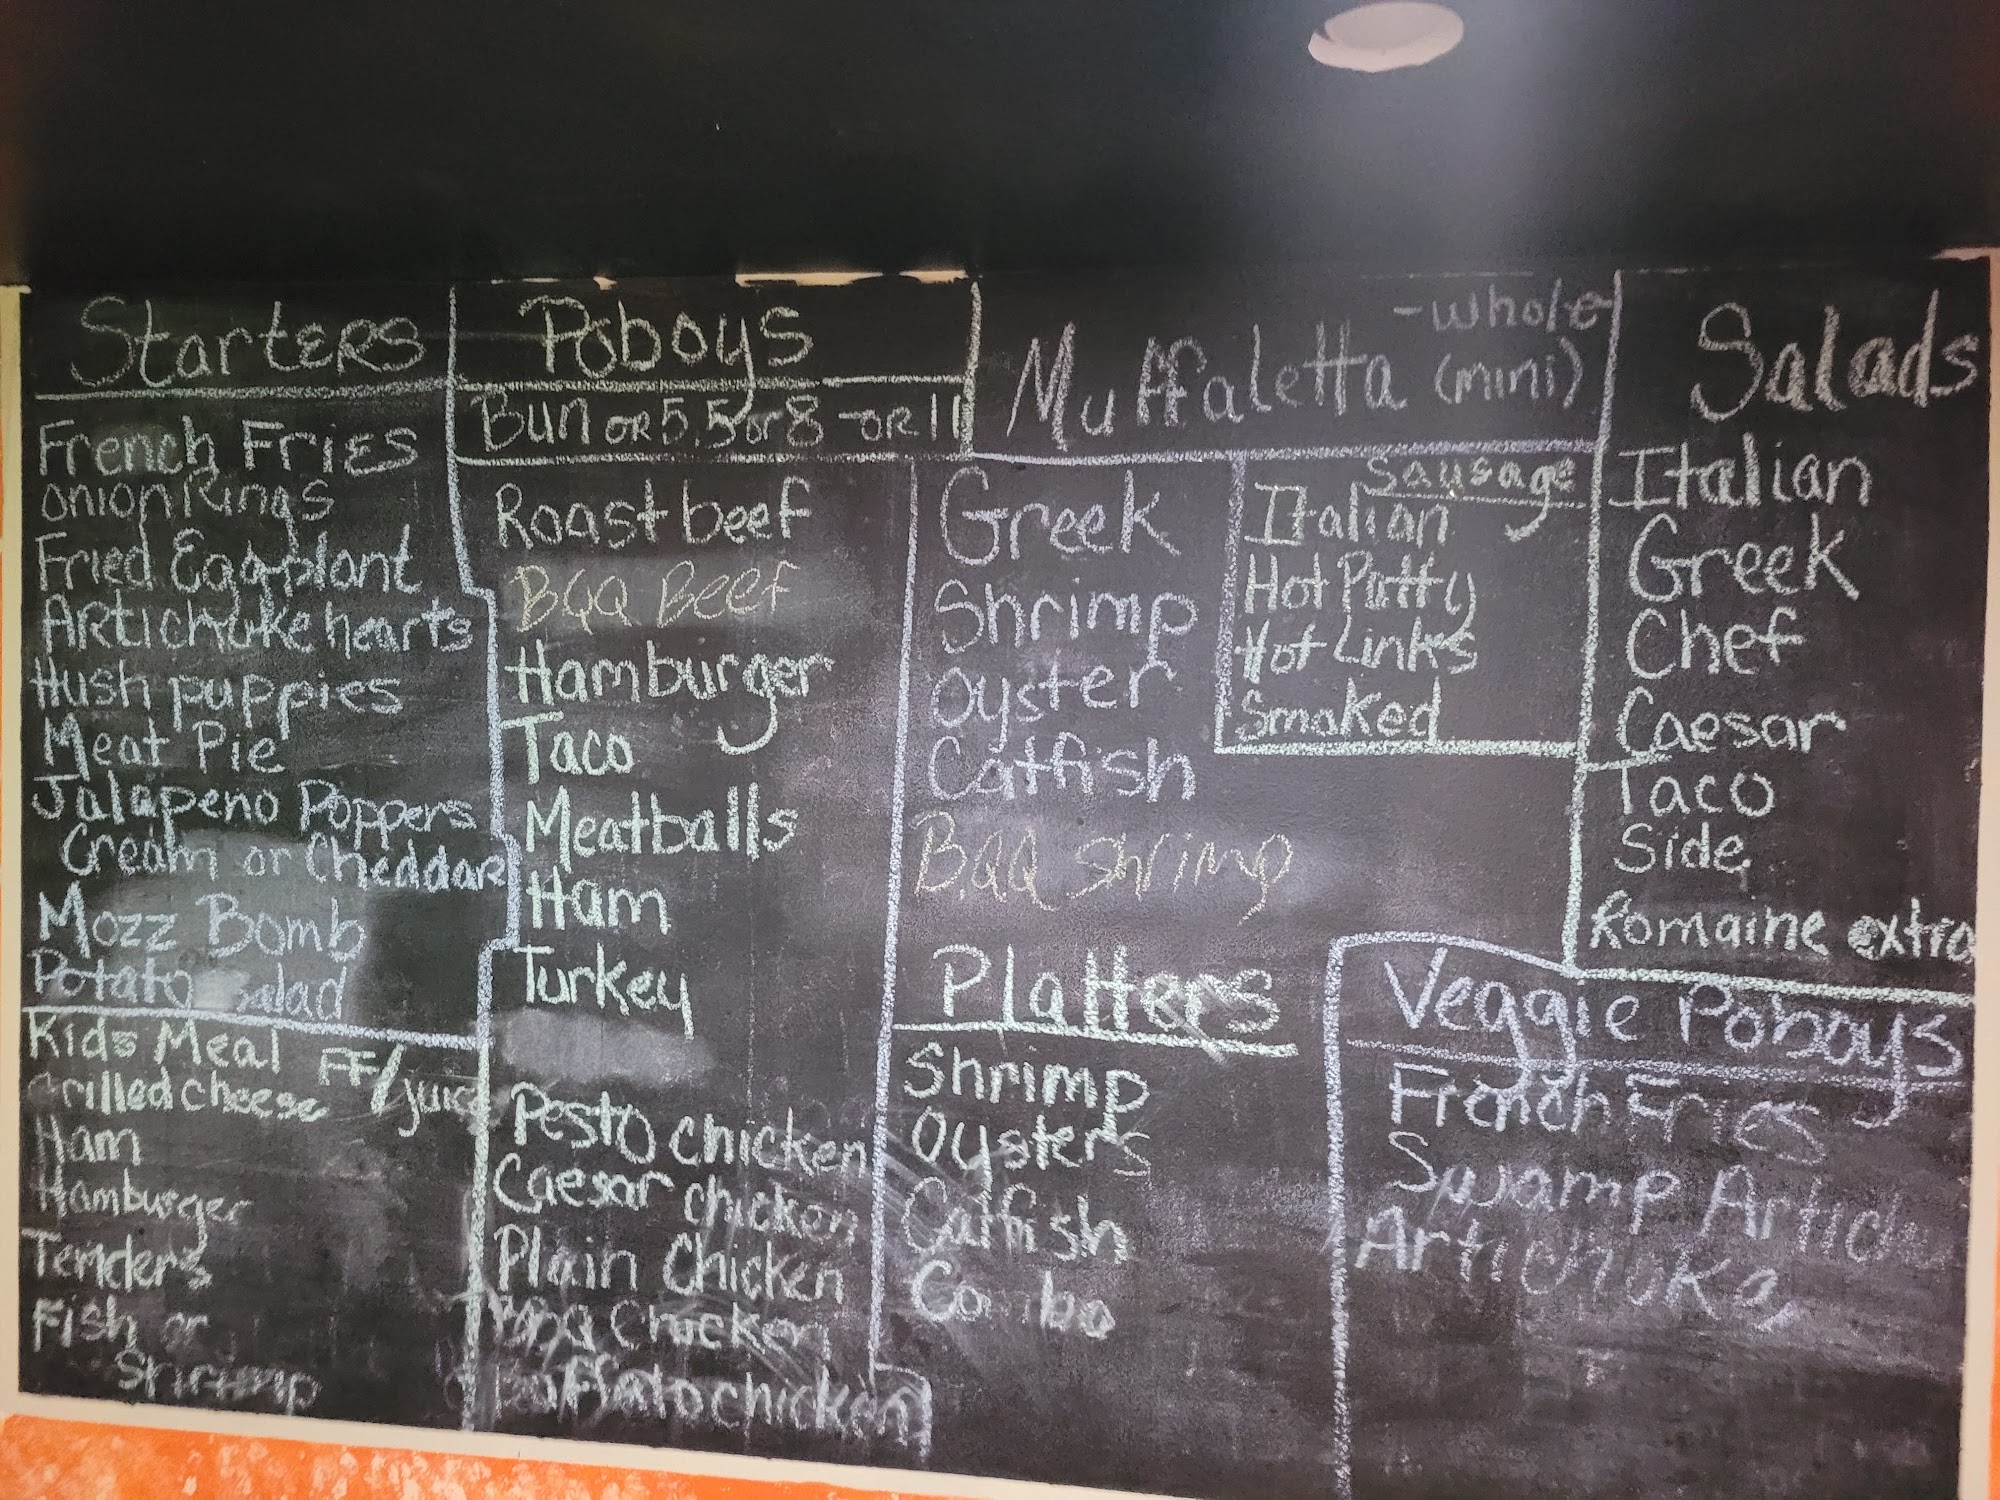 Starters
French Fries
onion Rings
Fried Eggplant
Artichuke hearts
Hush puppies
Meat Pie
Jalapeno Poppers
Cream or Cheddar
Mozz Bomb
Potato Salad
Kids Meal FF/juice
Grilled cheese
Ham
Hamburger
Tenders
Fish or
Shrimp
Poboys
Bun OR 5.5 or 8 -OR 11
Roast beef
BQQ Beef
Hamburger
Taco
Meatballs
Ham
Turkey
Pesto chicken
Caesar chicken
Plain Chicken
BBQ Chicken
Buffalo chicken
Muffaletta
-whole
(mini)
Greek
Shrimp
Oyster
Catfish
B.QQ Shrimp
Sausage
Italian
Hot Patty
Hot Links
Smoked
Platters
Shrimp
Oysters
Catfish
Combo
Salads
Italian
Greek
Chef
Caesar
Taco
Side
Romaine extra
Veggie Poboys
French Fries
Swamp
Artichoke